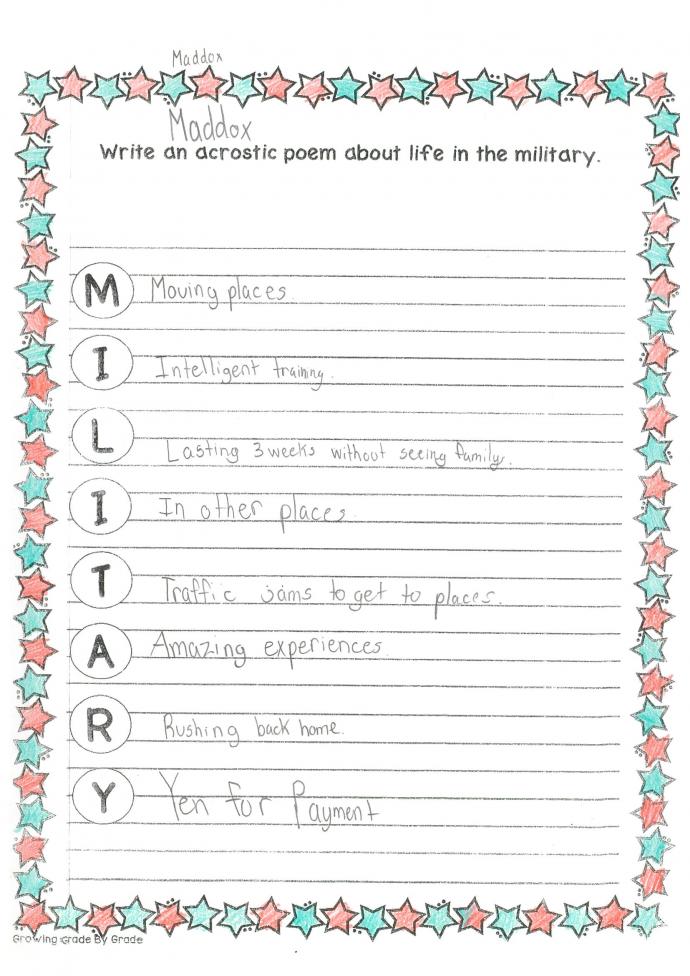 Maddox
Maddox
Write an acrostic poem about life in the military.
M Moving places
I Intelligent training.
L Lasting 3 weeks without seeing family.
I In other places
T Traffic jams to get to places.
A Amazing experiences
R Rushing back home.
Y Yen for Payment
Growing Grade By Grade